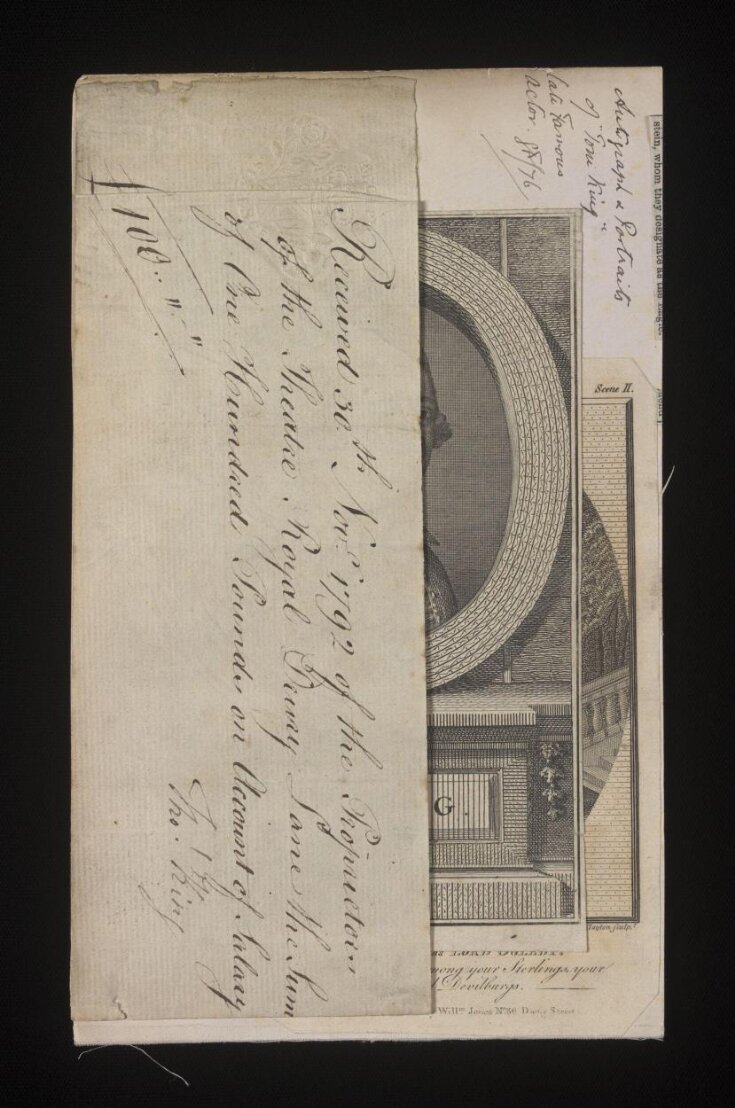 Received 30.th Nov.r 1792 of the Proprietors
of the Theatre Royal Drury Lane the Sum
of One Hundred Pounds on Account of Salary
£100.. " - "
Tho.s King
Autograph & Portraits
of "Tom King"
late famous
actor.
stein, whom they designate as the
Scene II.
G.
Taylor sculp.t
among your Sterlings, your
Devilburgs.
Will.m Jones N.o 86 Dame Street